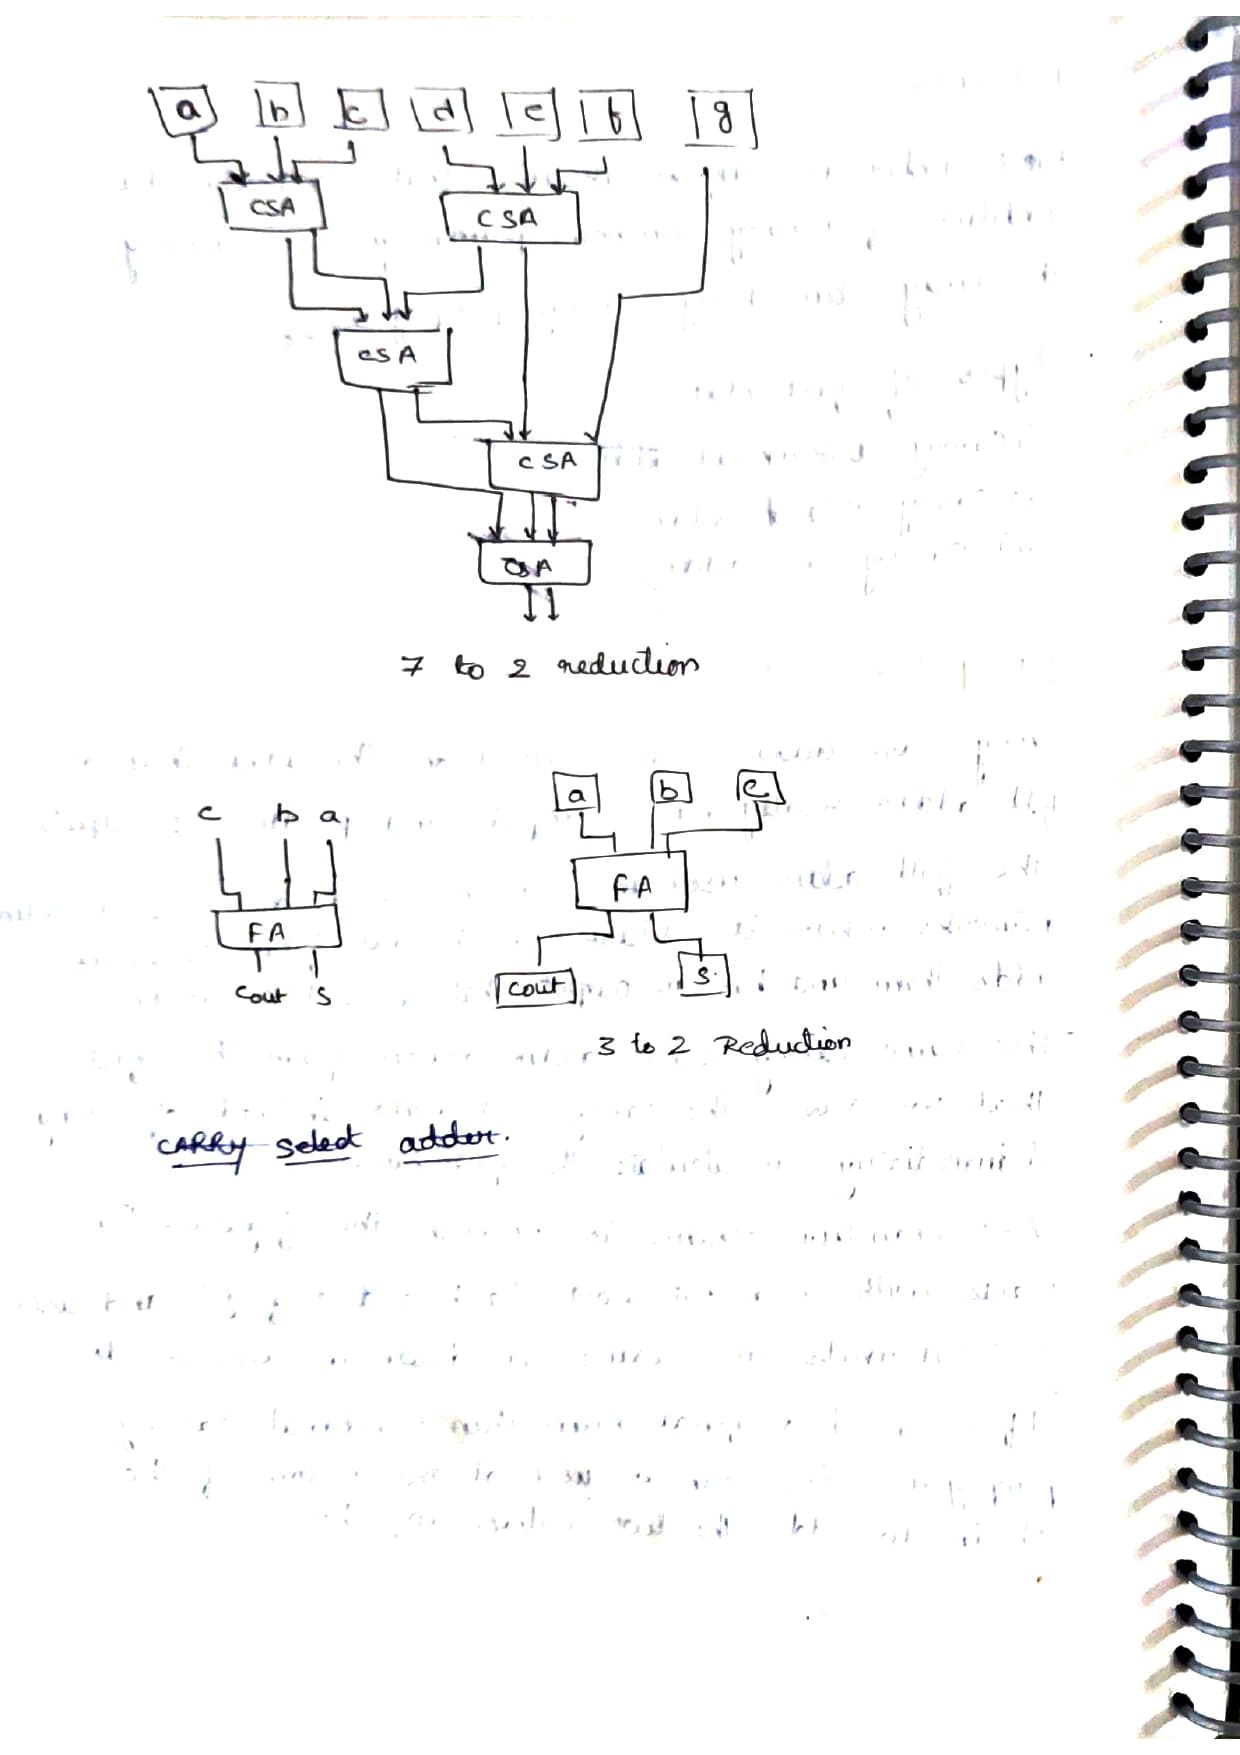 a b c d e f g
CSA CSA
CSA
CSA
CSA
7 to 2 reduction
a b c
c b a
FA
FA
Cout S
Cout S
3 to 2 Reduction
CARRY select adder.